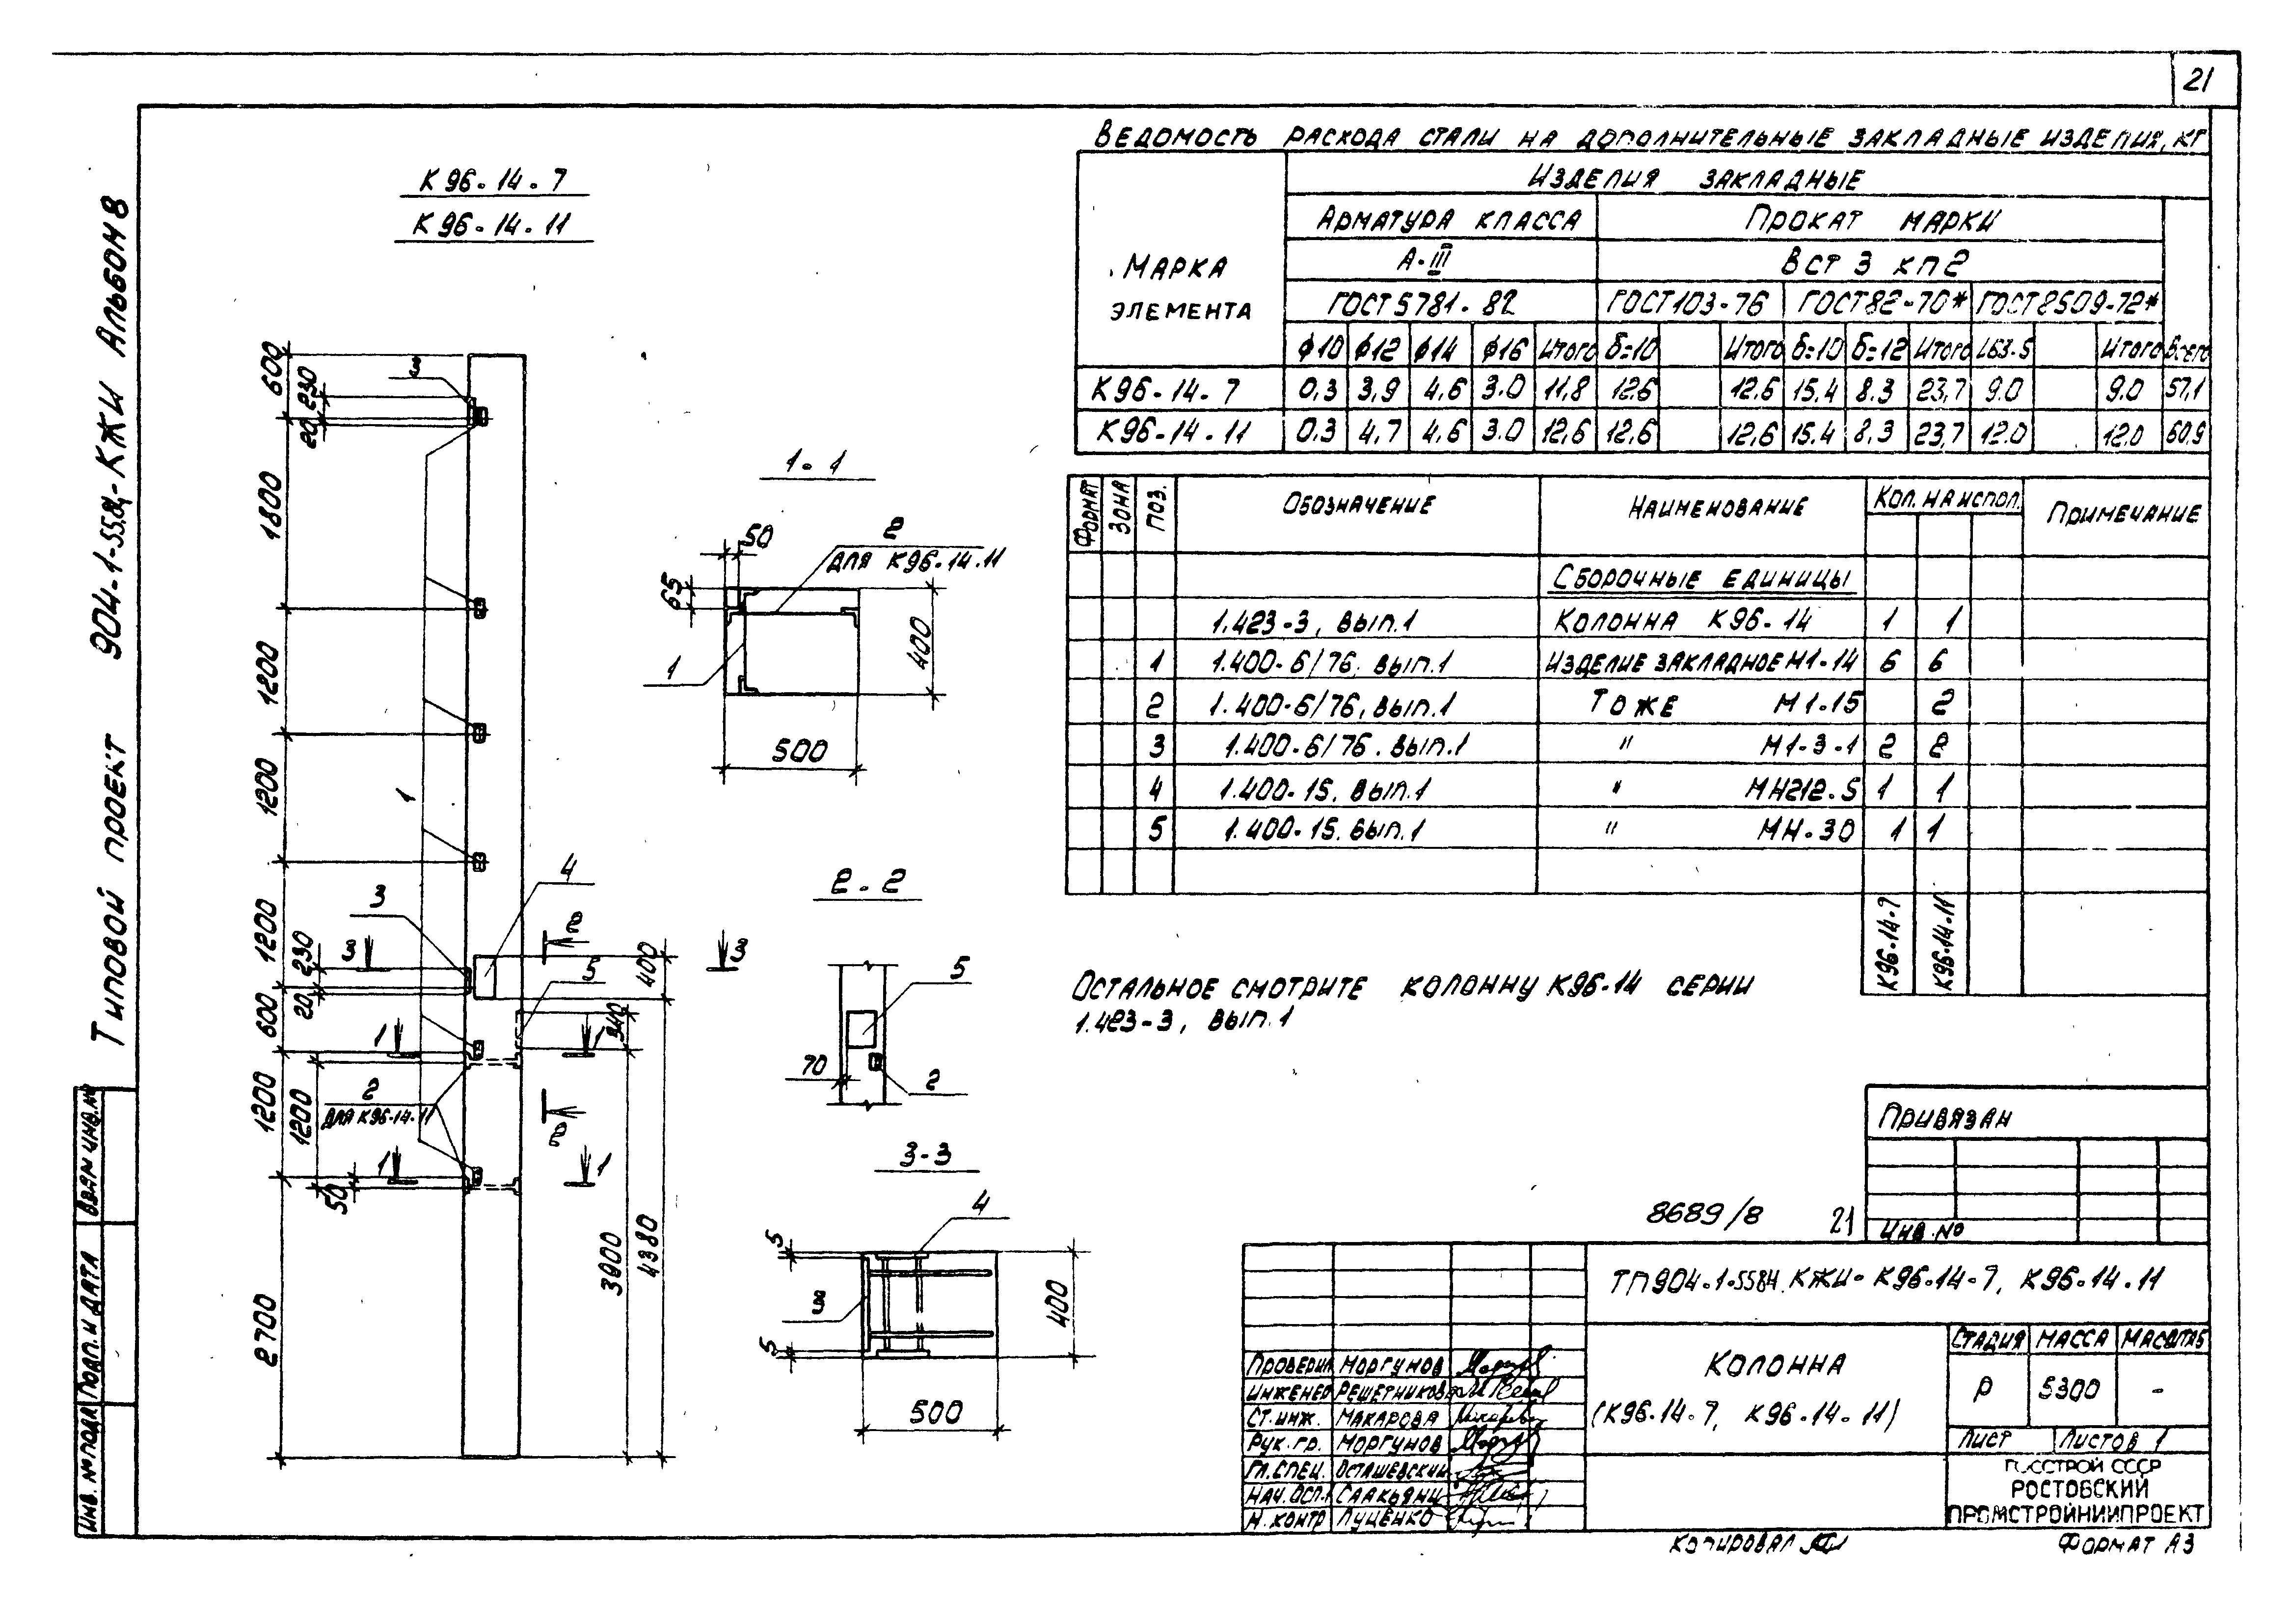 21
Типовой проект 904-1-55.84-КЖИ Альбом 8
К96-14-7
К96-14-11
Ведомость расхода стали на дополнительные закладные изделия, кг
Марка элемента
Изделия закладные
Арматура класса
Прокат марки
А-III
Вст 3 кп2
ГОСТ 5781-82
ГОСТ 103-76
ГОСТ 82-70*
ГОСТ 8509-72*
ф10 ф12 ф14 ф16 Итого δ=10 Итого δ=10 δ=12 Итого L63·5 Итого Всего
К96-14-7 0,3 3,9 4,6 3.0 11,8 12.6 12.6 15.4 8.3 23,7 9.0 9.0 57,1
К96-14-11 0,3 4,7 4,6 3.0 12,6 12,6 12,6 15.4 8,3 23,7 12.0 12.0 60.9
Формат Зона Поз. Обозначение Наименование Кол. на испол. Примечание
Сборочные единицы
1.423-3, вып.1 Колонна К96-14 1 1
1 1.400-6/76. вып.1 Изделие закладное М1-14 6 6
2 1.400-6/76, вып.1 То же М1-15 2
3 1.400-6/76. вып.1 " М1-3-1 2 2
4 1.400-15. вып.1 " МН212-5 1 1
5 1.400-15. вып.1 " МН-30 1 1
К96-14-7
К96-14-11
Остальное смотрите колонну К96-14 серии
1.423-3, вып.1
600
230
20
1800
1200
1200
1200
230
20
600
1200
1200
50
2700
3
1
3
4
5
3
3
2
2
1
1
1
1
2
для К96-14-11
400
340
3900
4380
1-1
50
65
2
для К96-14-11
1
400
500
2-2
5
70
2
3-3
4
5
3
5
400
500
Привязан
Инв. №
8689/8 21
ТП904-1-5584. КЖИ- К96-14-7, К96-14-11
Колонна
(К96-14-7, К96-14-11)
Стадия Масса Масштаб
Р 5300 -
Лист Листов 1
Госстрой СССР
Ростовский
Промстройниипроект
Проверил Моргунов
Инженер Решетников
Ст.инж. Макарова
Рук.гр. Моргунов
Гл.спец. Осташевский
Нач.осп. Саакьянц
Н.контр Луценко
Взам инв.№
Подп. и дата
Инв. № подл
Копировал
Формат А3